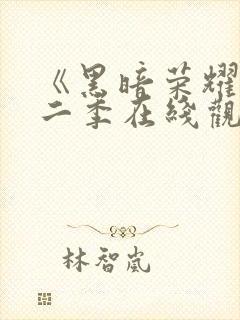 《黑暗荣耀
二季在线觀
林智嵐